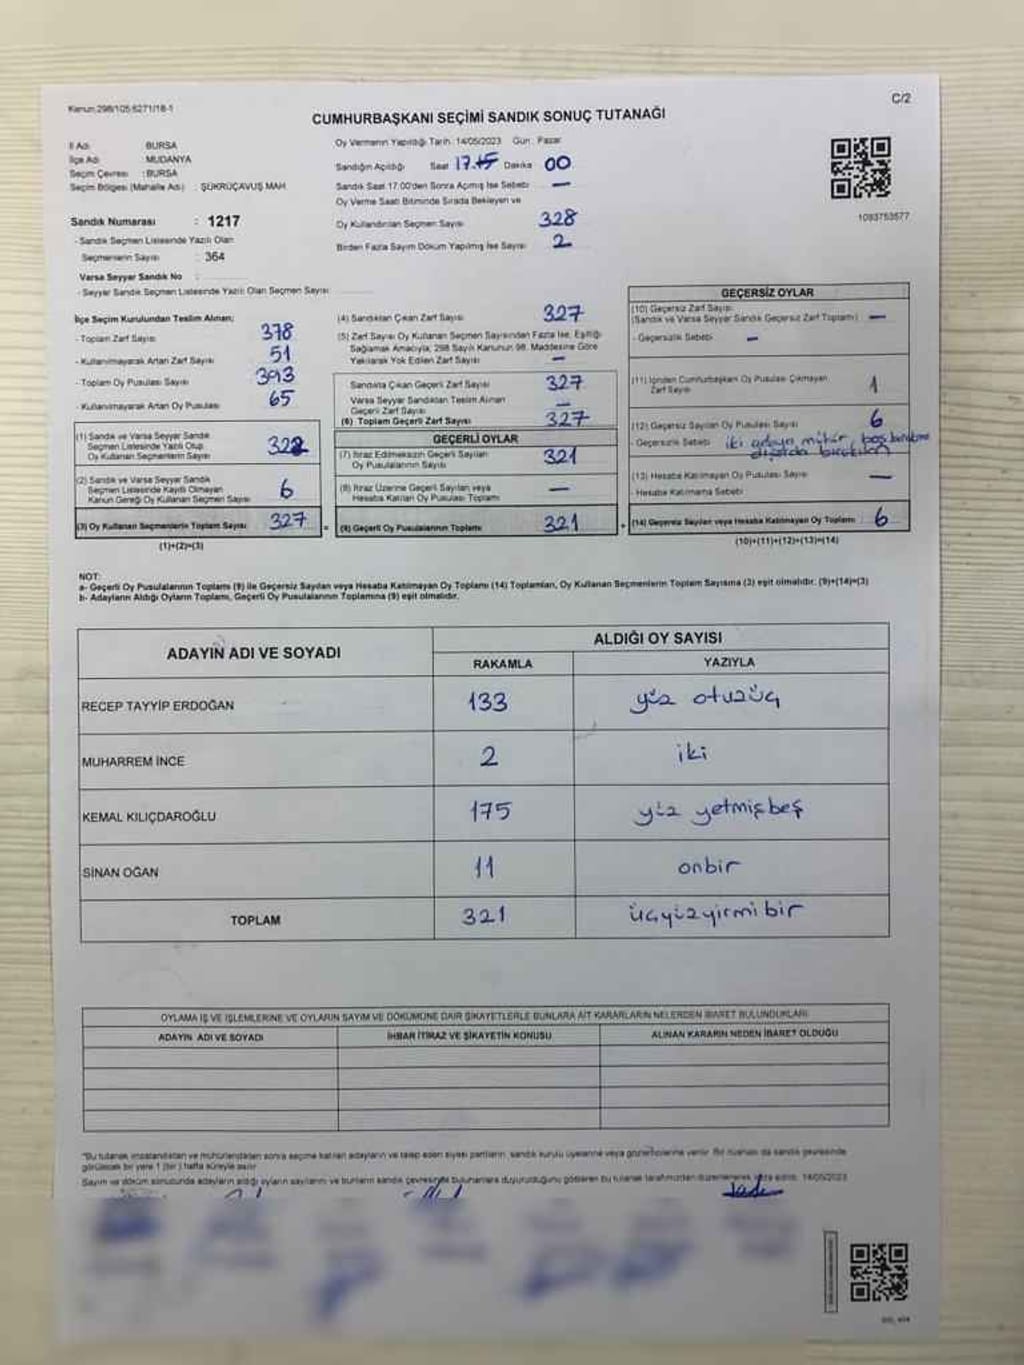 Kanun:298/105,6271/18-1
C/2
CUMHURBAŞKANI SEÇİMİ SANDIK SONUÇ TUTANAĞI
İl Adı BURSA
İlçe Adı MUDANYA
Seçim Çevresi : BURSA
Seçim Bölgesi (Mahalle Adı) : ŞÜKRÜÇAVUŞ MAH.
Sandık Numarası : 1217
- Sandık Seçmen Listesinde Yazılı Olan
Seçmenlerin Sayısı : 364
Varsa Seyyar Sandık No :
- Seyyar Sandık Seçmen Listesinde Yazılı Olan Seçmen Sayısı
Oy Vermenin Yapıldığı Tarih: 14/05/2023 Gün: Pazar
Sandığın Açıldığı Saat 17.15 Dakika 00
Sandık Saat 17:00'den Sonra Açılmış İse Sebebi —
Oy Verme Saati Bitiminde Sırada Bekleyen ve
Oy Kullandırılan Seçmen Sayısı 328
Birden Fazla Sayım Döküm Yapılmış İse Sayısı 2
1093753577
İlçe Seçim Kurulundan Teslim Alınan;
- Toplam Zarf Sayısı 378
- Kullanılmayarak Artan Zarf Sayısı 51
- Toplam Oy Pusulası Sayısı 393
- Kullanılmayarak Artan Oy Pusulası 65
(1) Sandık ve Varsa Seyyar Sandık
Seçmen Listesinde Yazılı Olup
Oy Kullanan Seçmenlerin Sayısı
(2) Sandık ve Varsa Seyyar Sandık
Seçmen Listesinde Kaydı Olmayan
Kanun Gereği Oy Kullanan Seçmen Sayısı 6
(3) Oy Kullanan Seçmenlerin Toplam Sayısı 327 =
(1)+(2)=(3)
(4) Sandıktan Çıkan Zarf Sayısı 327
(5) Zarf Sayısı Oy Kullanan Seçmen Sayısından Fazla İse, Eşitliği
Sağlamak Amacıyla; 298 Sayılı Kanunun 98. Maddesine Göre
Yakılarak Yok Edilen Zarf Sayısı —
Sandıkta Çıkan Geçerli Zarf Sayısı 327
Varsa Seyyar Sandıktan Teslim Alınan
Geçerli Zarf Sayısı —
(6) Toplam Geçerli Zarf Sayısı 327
GEÇERLİ OYLAR
(7) İtiraz Edilmeksizin Geçerli Sayılan
Oy Pusulalarının Sayısı 321
(8) İtiraz Üzerine Geçerli Sayılan veya
Hesaba Katılan Oy Pusulası Toplamı —
(9) Geçerli Oy Pusulalarının Toplamı 321 +
GEÇERSİZ OYLAR
(10) Geçersiz Zarf Sayısı
(Sandık ve Varsa Seyyar Sandık Geçersiz Zarf Toplamı) —
- Geçersizlik Sebebi —
(11) İçinden Cumhurbaşkanı Oy Pusulası Çıkmayan
Zarf Sayısı 1
(12) Geçersiz Sayılan Oy Pusulası Sayısı 6
- Geçersizlik Sebebi iki adaya mühür, boş bırakma
bırakılan
(13) Hesaba Katılmayan Oy Pusulası Sayısı —
- Hesaba Katılmama Sebebi
(14) Geçersiz Sayılan veya Hesaba Katılmayan Oy Toplamı 6
(10)+(11)+(12)+(13)=(14)
NOT:
a- Geçerli Oy Pusulalarının Toplamı (9) ile Geçersiz Sayılan veya Hesaba Katılmayan Oy Toplamı (14) Toplamları, Oy Kullanan Seçmenlerin Toplam Sayısına (3) eşit olmalıdır. (9)+(14)=(3)
b- Adayların Aldığı Oyların Toplamı, Geçerli Oy Pusulalarının Toplamına (9) eşit olmalıdır.
ADAYIN ADI VE SOYADI
ALDIĞI OY SAYISI
RAKAMLA YAZIYLA
RECEP TAYYİP ERDOĞAN 133 yüz otuzüç
MUHARREM İNCE 2 iki
KEMAL KILIÇDAROĞLU 175 yüz yetmişbeş
SİNAN OĞAN 11 onbir
TOPLAM 321 üçyüzyirmibir
OYLAMA İŞ VE İŞLEMLERİNE VE OYLARIN SAYIM VE DÖKÜMÜNE DAİR ŞİKAYETLERLE BUNLARA AİT KARARLARIN NELERDEN İBARET BULUNDUKLARI
ADAYIN ADI VE SOYADI İHBAR İTİRAZ VE ŞİKAYETİN KONUSU ALINAN KARARIN NEDEN İBARET OLDUĞU
"Bu tutanak imzalandıktan ve mühürlendikten sonra seçime katılan adayların ve talep eden siyasi partilerin, sandık kurulu üyelerine veya gözlemcilerine verilir. Bir nüshası da sandık çevresinde
görülecek bir yere 1 (bir) hafta süreyle asılır.
Sayım ve döküm sonucunda adayların aldığı oyların sayılarını ve bunların sandık çevresinde bulunanlara duyurulduğunu gösteren bu tutanak tarafımızdan düzenlenerek imza edildi. 14/05/2023